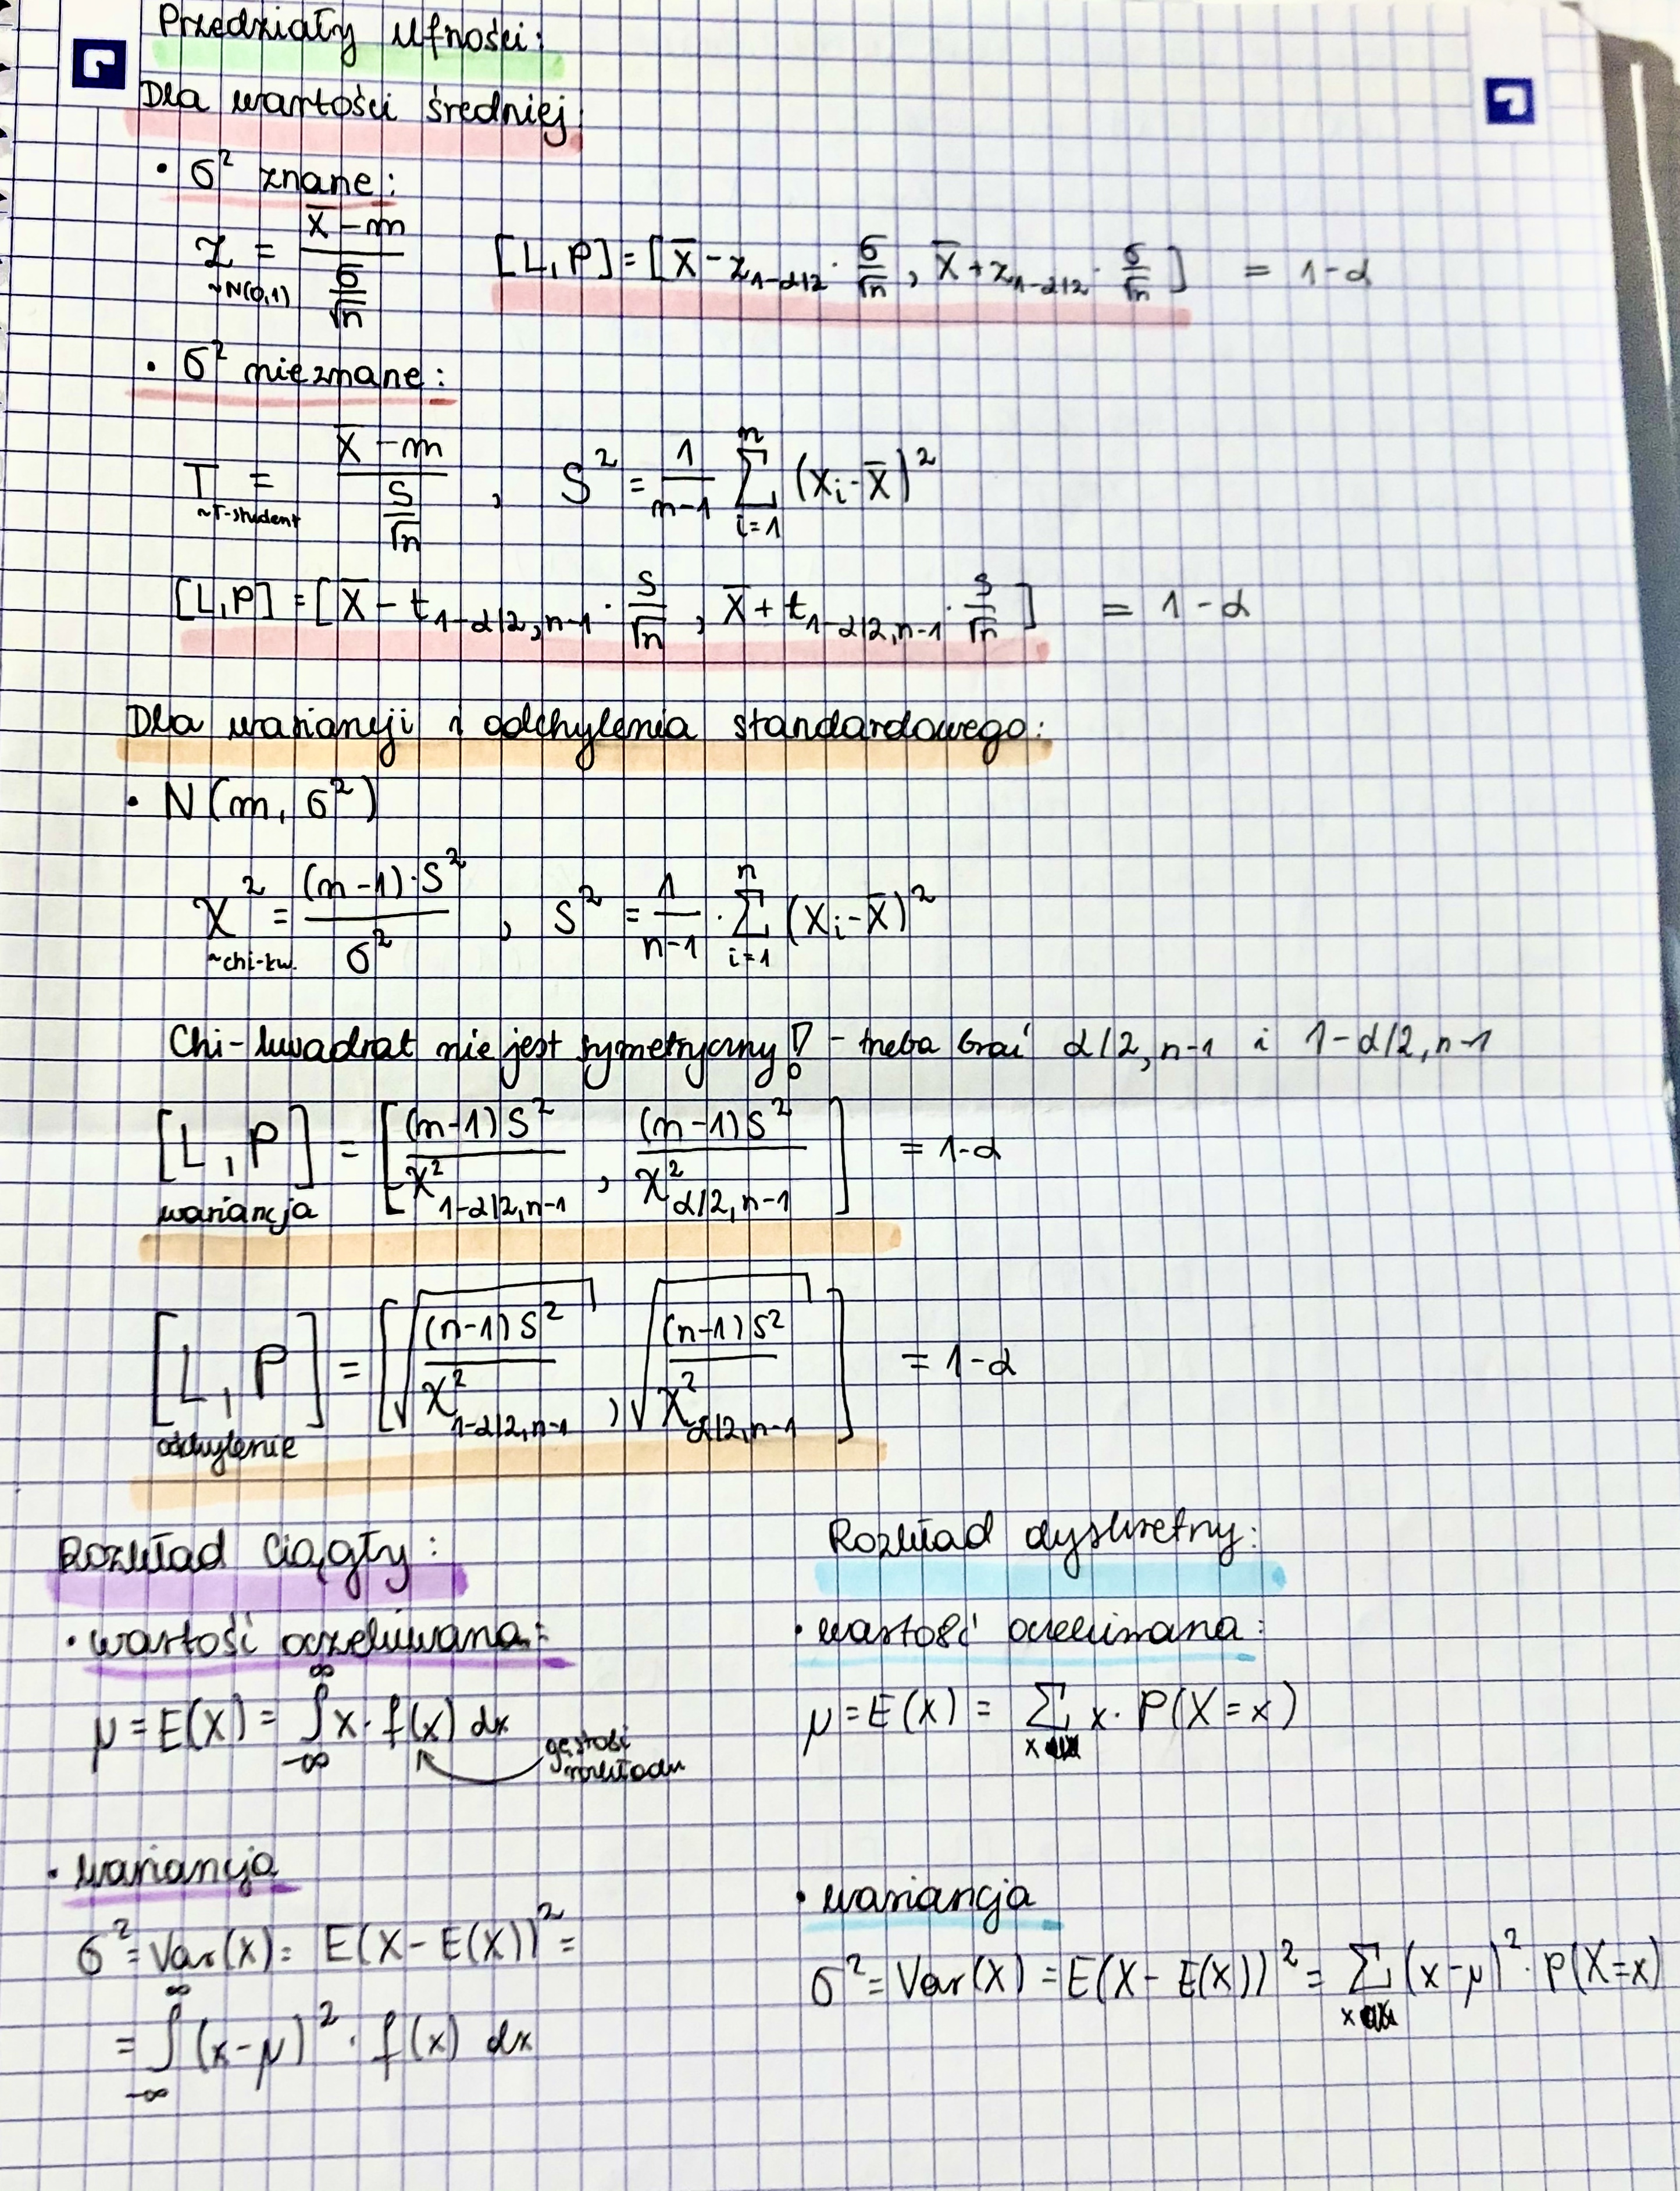 Przedziały ufności:
Dla wartości średniej:
• σ² znane:
Z = (x̄ - m) / (σ/√n)   [L,P] = [x̄ - z₁₋α/₂ · σ/√n , x̄ + z₁₋α/₂ · σ/√n] = 1-α
~N(0,1)
• σ² nieznane:
T = (x̄ - m) / (S/√n) , S² = 1/(n-1) Σᵢ₌₁ⁿ (xᵢ - x̄)²
~T-student
[L,P] = [x̄ - t₁₋α/₂,ₙ₋₁ · S/√n , x̄ + t₁₋α/₂,ₙ₋₁ · S/√n] = 1-α
Dla wariancji i odchylenia standardowego:
• N(m, σ²)
χ² = (n-1)·S² / σ² , S² = 1/(n-1) · Σᵢ₌₁ⁿ (xᵢ - x̄)²
~chi-kw.
Chi-kwadrat nie jest symetryczny! - trzeba brać α/2, n-1 i 1-α/2, n-1
[L, P] = [(n-1)S² / χ²₁₋α/₂,ₙ₋₁ , (n-1)S² / χ²α/₂,ₙ₋₁] = 1-α
wariancja
[L, P] = [√((n-1)S² / χ²₁₋α/₂,ₙ₋₁) , √((n-1)S² / χ²α/₂,ₙ₋₁)] = 1-α
odchylenie
Rozkład ciągły:
• wartość oczekiwana:
μ = E(X) = ∫₋∞^∞ x · f(x) dx
gęstość
rozkładu
• wariancja
σ² = Var(X) = E(X - E(X))² =
= ∫₋∞^∞ (x-μ)² · f(x) dx
Rozkład dyskretny:
• wartość oczekiwana:
μ = E(X) = Σₓ x · P(X=x)
• wariancja
σ² = Var(X) = E(X - E(X))² = Σₓ (x-μ)² · P(X=x)